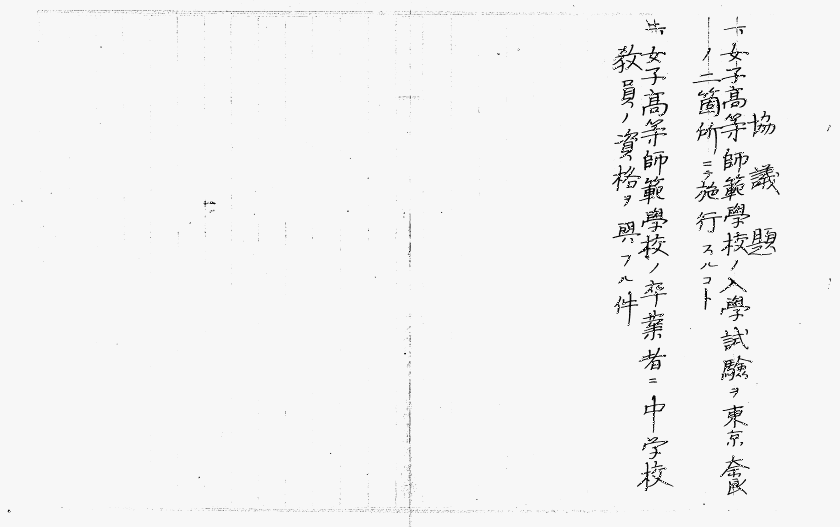 協議題
一、女子高等師範學校ノ入學試驗ヲ東京奈良
ノ二箇所ニテ施行スルコト
女子高等師範學校ノ卒業者ニ中学校
教員ノ資格ヲ與フル件